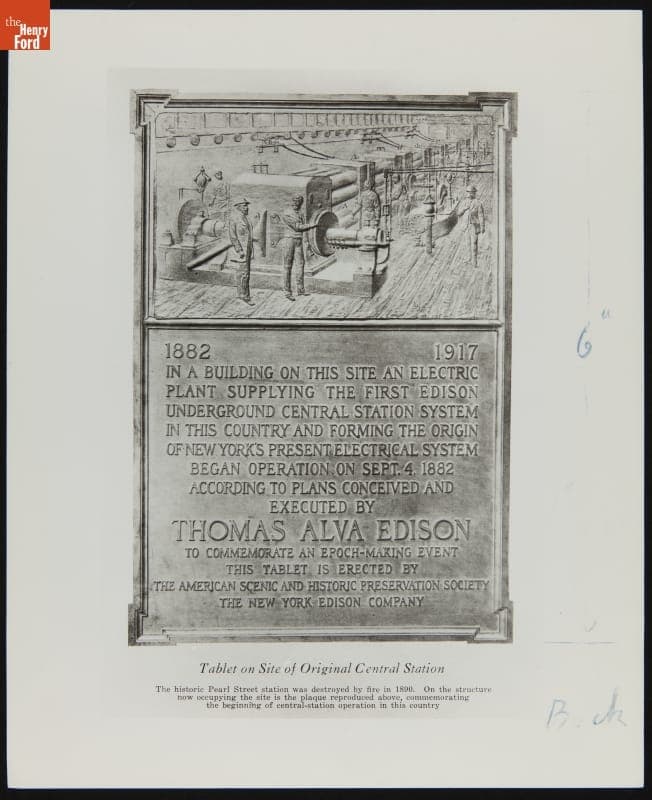 the
Henry
Ford
1882 1917
IN A BUILDING ON THIS SITE AN ELECTRIC
PLANT SUPPLYING THE FIRST EDISON
UNDERGROUND CENTRAL STATION SYSTEM
IN THIS COUNTRY AND FORMING THE ORIGIN
OF NEW YORK'S PRESENT ELECTRICAL SYSTEM
BEGAN OPERATION ON SEPT. 4. 1882
ACCORDING TO PLANS CONCEIVED AND
EXECUTED BY
THOMAS ALVA EDISON
TO COMMEMORATE AN EPOCH-MAKING EVENT
THIS TABLET IS ERECTED BY
THE AMERICAN SCENIC AND HISTORIC PRESERVATION SOCIETY
THE NEW YORK EDISON COMPANY
Tablet on Site of Original Central Station
The historic Pearl Street station was destroyed by fire in 1890. On the structure
now occupying the site is the plaque reproduced above, commemorating
the beginning of central-station operation in this country
6"